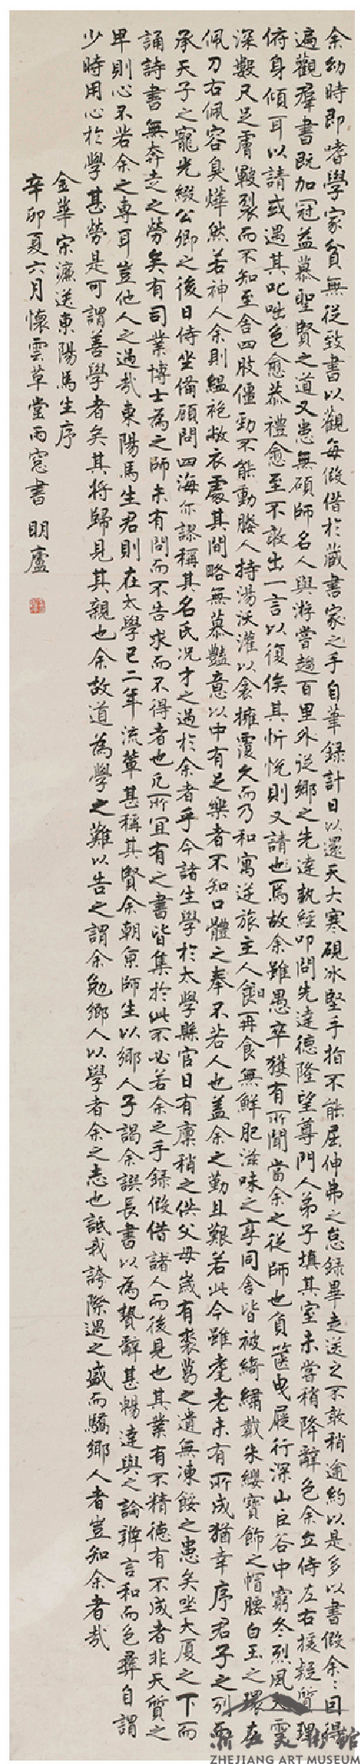 余幼時即嗜學家貧無從致書以觀每假借於藏書家之手自筆錄計日以還天大寒硯冰堅手指不能屈伸弗之怠錄畢走送之不敢稍逾約以是多以書假余余因得
遍觀羣書既加冠益慕聖賢之道又患無碩師名人與游嘗趨百里外從鄉之先達執經叩問先達德隆望尊門人弟子填其室未嘗稍降辭色余立侍左右援疑質理
俯身傾耳以請或遇其叱咄色愈恭禮愈至不敢出一言以復俟其忻悅則又請也焉故余雖愚卒獲有所聞當余之從師也負篋曳屣行深山巨谷中窮冬烈風大雪
深數尺足膚皸裂而不知至舍四肢僵勁不能動媵人持湯沃灌以衾擁覆久而乃和寓逆旅主人日再食無鮮肥滋味之享同舍皆被綺繡戴朱纓寶飾之帽腰白玉之環左
佩刀右佩容臭燁然若神人余則縕袍敝衣處其間略無慕豔意以中有足樂者不知口體之奉不若人也蓋余之勤且艱若此今雖耄老未有所成猶幸序君子之列而
承天子之寵光綴公卿之後日侍坐備顧問四海亦謬稱其名氏況才之過於余者乎今諸生學於太學縣官日有廩稍之供父母歲有裘葛之遺無凍餒之患矣坐大廈之下而
誦詩書無奔走之勞矣有司業博士為之師未有問而不告求而不得者也凡所宜有之書皆集於此不必若余之手錄假借諸人而後見也其業有不精德有不成者非天質之
卑則心不若余之專耳豈他人之過哉東陽馬生君則在太學已二年流輩甚稱其賢余朝京師生以鄉人子謁余譔長書以為贄辭甚暢達與之論辨言和而色彝自謂
少時用心於學甚勞是可謂善學者矣其將歸見其親也余故道為學之難以告之謂余勉鄉人以學者余之志也詆我誇際遇之盛而驕鄉人者豈知余者哉
金華宋濂送東陽馬生序
辛卯夏六月懷雲草堂雨窗書 明廬
浙江美術館
ZHEJIANG ART MUSEUM